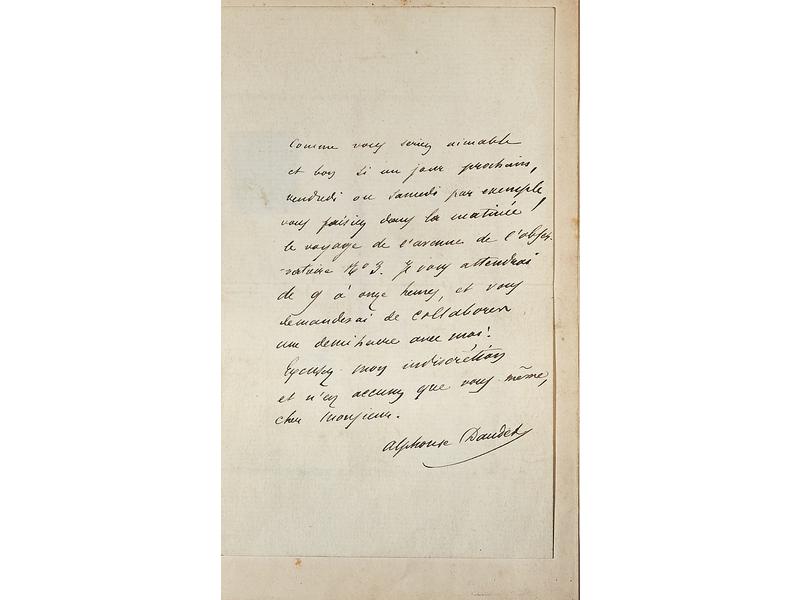 Comme vous seriez aimable
et bon si un jour prochain,
vendredi ou samedi par exemple,
vous faisiez dans la matinée,
le voyage de l'avenue de l'obser-
vatoire No 3. Je vous attendrai
de 9 à onze heures, et vous
demanderai de collaborer
une demi heure avec moi!
Excusez mon indiscrétion
et n'en accusez que vous même,
cher Monsieur.
Alphonse Daudet